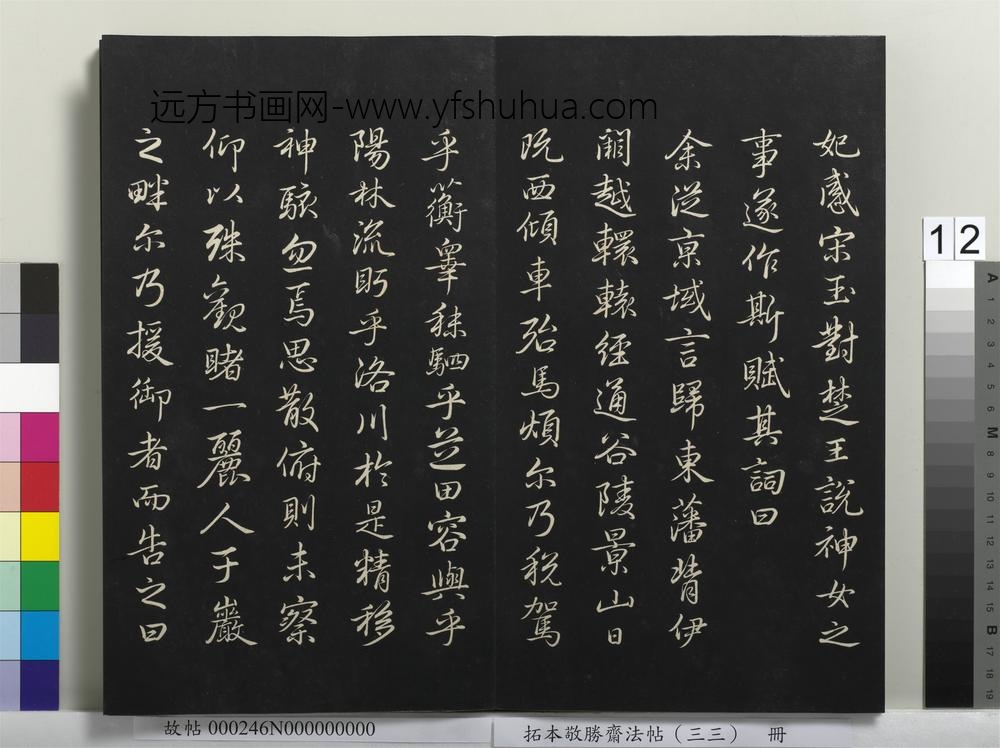 远方书画网-www.yfshuhua.com
妃感宋玉對楚王說神女之
事遂作斯賦其詞曰
余從京域言歸東藩背伊
闕越轘轅經通谷陵景山日
既西傾車殆馬煩尔乃稅駕
乎蘅皐秣駟乎芝田容與乎
陽林流眄乎洛川於是精移
神駭忽焉思散俯則未察
仰以殊觀睹一麗人于巖
之畔尔乃援御者而告之曰
12
A 1 2 3 4 5 6 M 8 9 10 11 12 13 14 15 B 17 18 19
故帖 000246N000000000
拓本敬勝齋法帖（三三） 冊